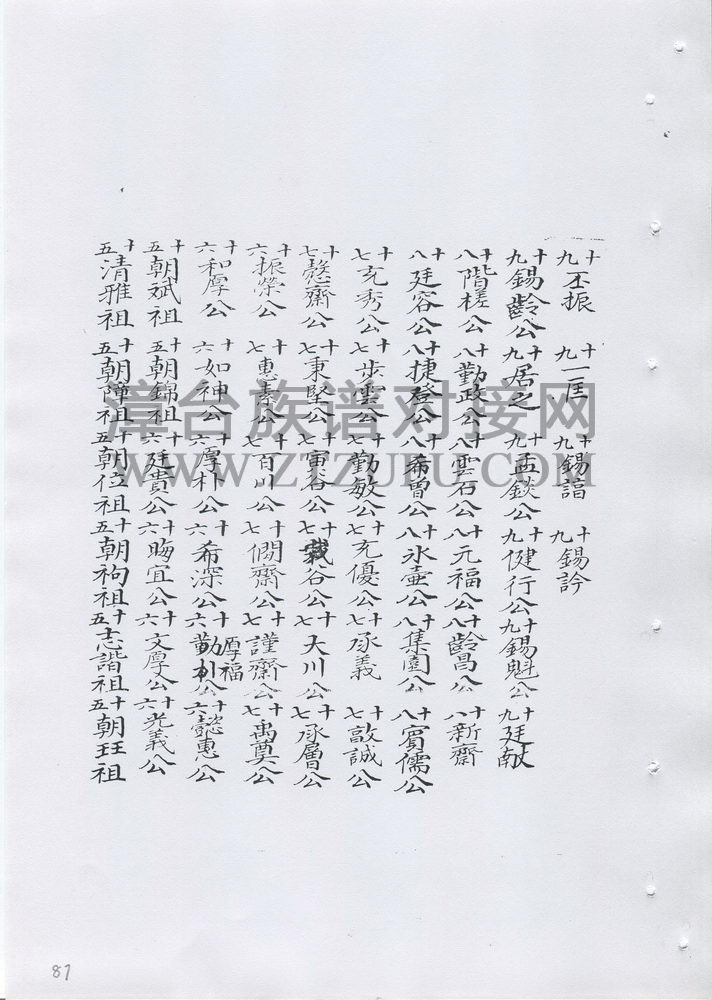 十九丕振 十九一匡 十九錫諨 十九錫訡
十九錫齡公 十九居之 十九孟錟公 十九健行公 十九錫魁公 十九廷献
十八階槎公 十八勤政公 十八雲石公 十八元福公 十八齡昌公 十八新齋
十八廷容公 十八捷登公 十八希曾公 十八氷壺公 十八集園公 十八賓儒公
十七克秀公 十七步雲公 十七勤敏公 十七克優公 十七承義 十七敦誠公
十七愨齋公 十七秉堅公 十七寅谷公 十七谷公 十七大川公 十七承層公
十六振榮公 十七惠素公 十七百川公 十七僩齋公 十七謹齋公 十七禹奠公
十六和厚公 十六如神公 十六厚朴公 十六希深公 十六勤朴公 厚福 十六懿惠公
十五朝斌祖 十五朝錦祖 十六廷貴公 十六晦宜公 十六文厚公 十六光義公
十五清雅祖 十五朝障祖 十五朝位祖 十五朝祠祖 十五志諧祖 十五朝玨祖
漳台族谱对接网
WWW.ZTZUPU.COM
87